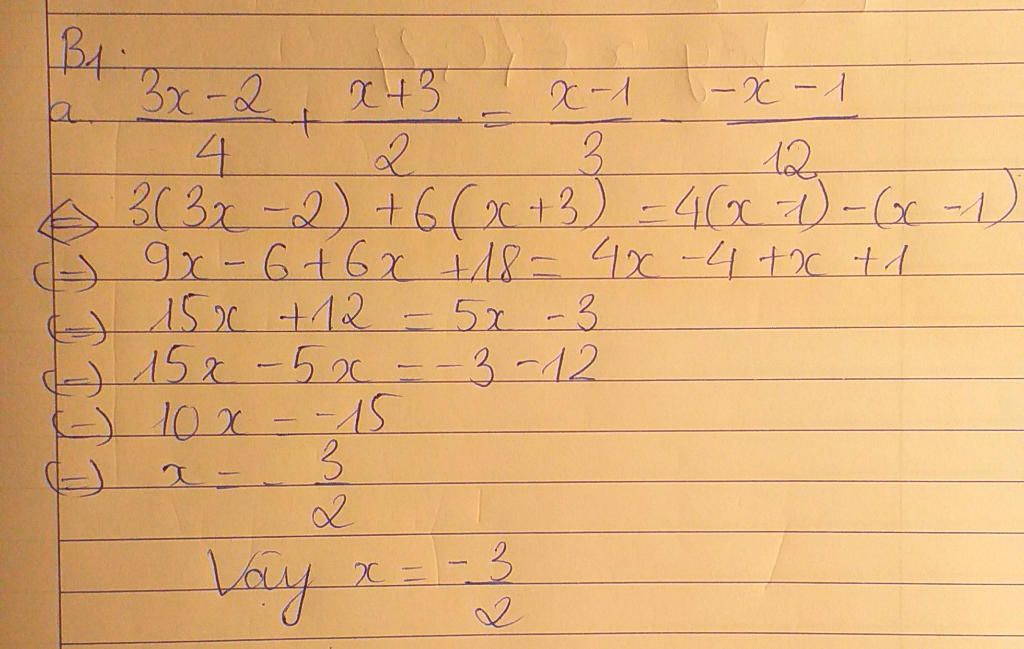 B1.
a. (3x - 2)/4 + (x + 3)/2 = (x - 1)/3 - (-x - 1)/12
⇔ 3(3x - 2) + 6(x + 3) = 4(x - 1) - (x - 1)
(=) 9x - 6 + 6x + 18 = 4x - 4 + x + 1
(=) 15x + 12 = 5x - 3
(=) 15x - 5x = -3 - 12
(=) 10x = -15
(=) x = - 3/2
Vậy x = -3/2